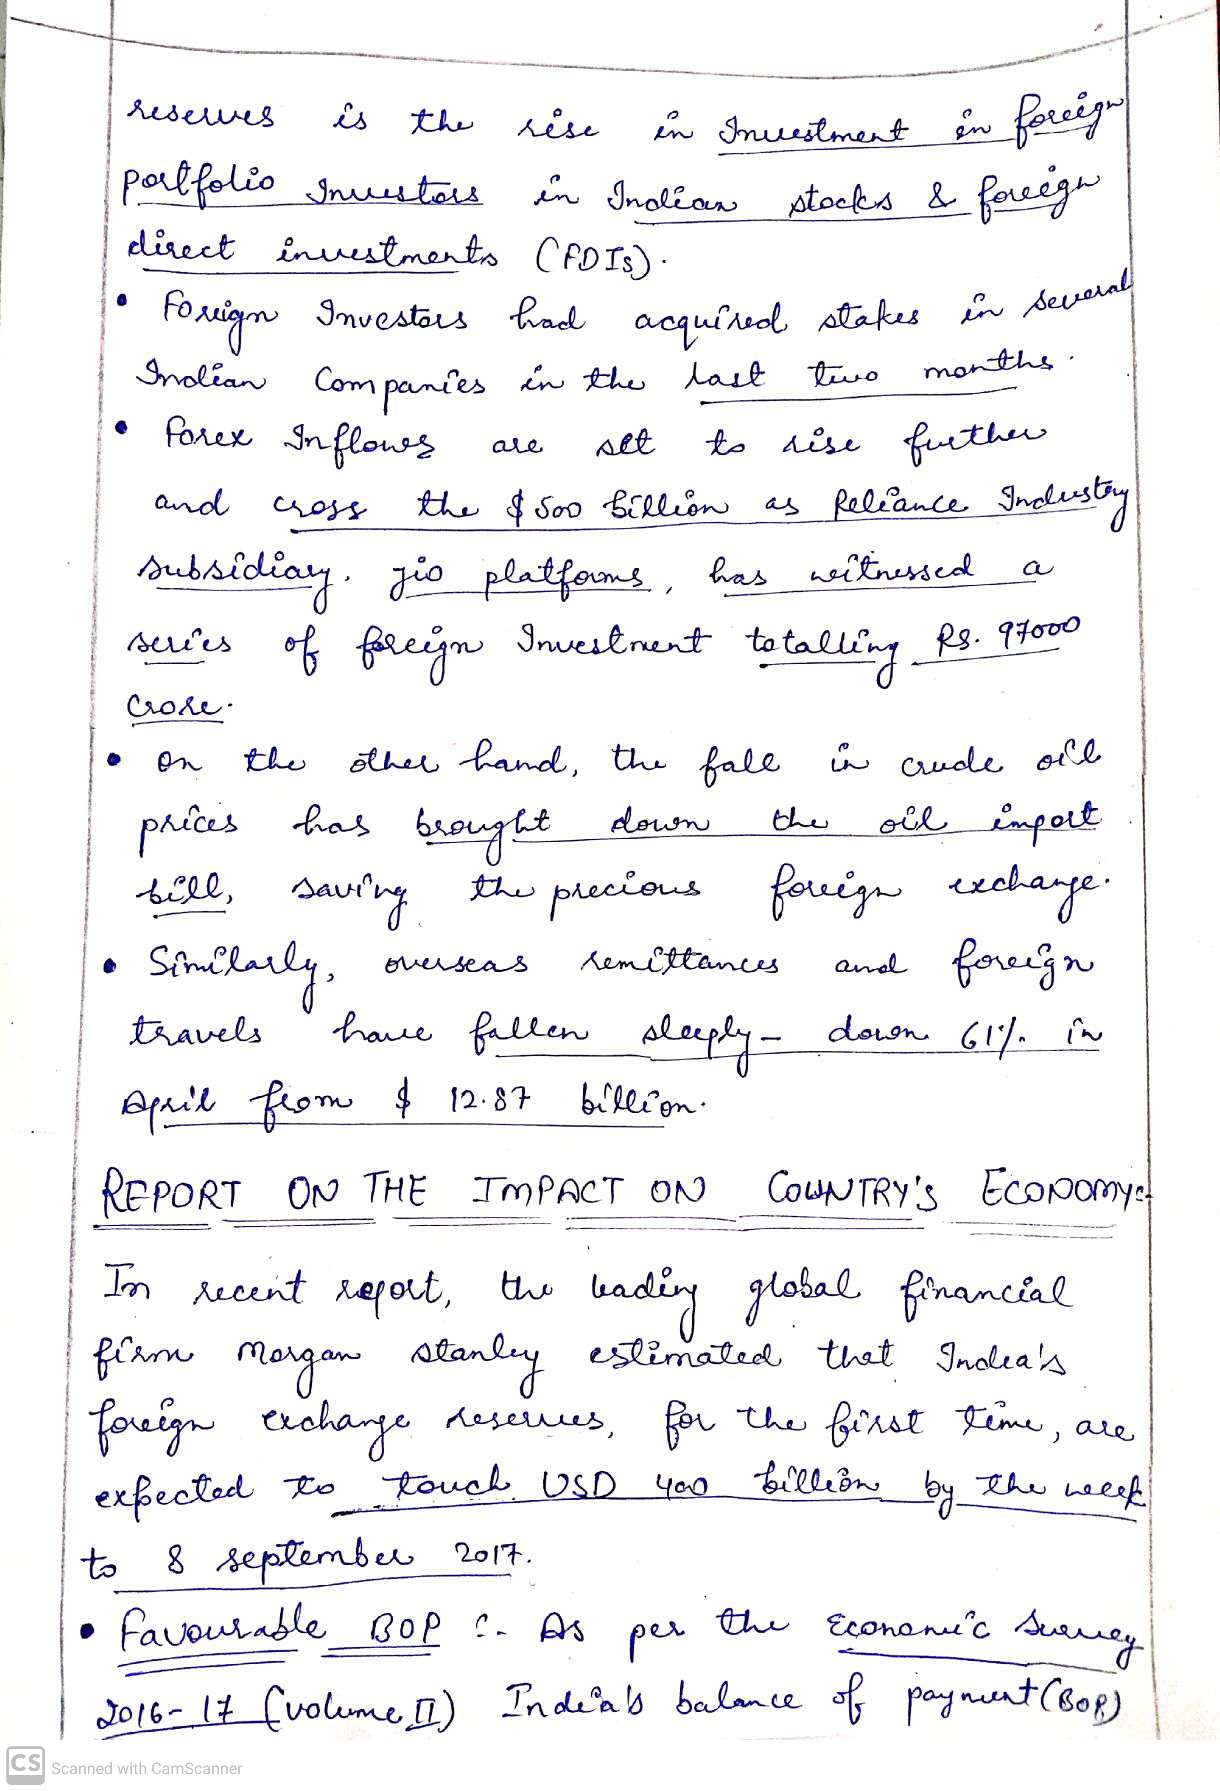 reserves is the rise in Investment in foreign
portfolio Investors in Indian stocks & foreign
direct investments (FDIs).
• Foreign Investors had acquired stakes in several
Indian Companies in the last two months.
• Forex Inflows are set to rise further
and cross the $500 billion as Reliance Industry
subsidiary, jio platforms, has witnessed a
series of foreign Investment totalling RS. 97000
crore.
• On the other hand, the fall in crude oil
prices has brought down the oil import
bill, saving the precious foreign exchange.
• Similarly, overseas remittances and foreign
travels have fallen steeply - down 61% in
April from $ 12.87 billion.
REPORT ON THE IMPACT ON COUNTRY'S ECONOMY:-
In recent report, the leading global financial
firm Morgan Stanley estimated that India's
foreign exchange reserves, for the first time, are
expected to touch USD 400 billion by the week
to 8 september 2017.
• Favourable BOP :- As per the Economic Survey
2016-17 (volume II) India's balance of payment (BOP)
CS Scanned with CamScanner